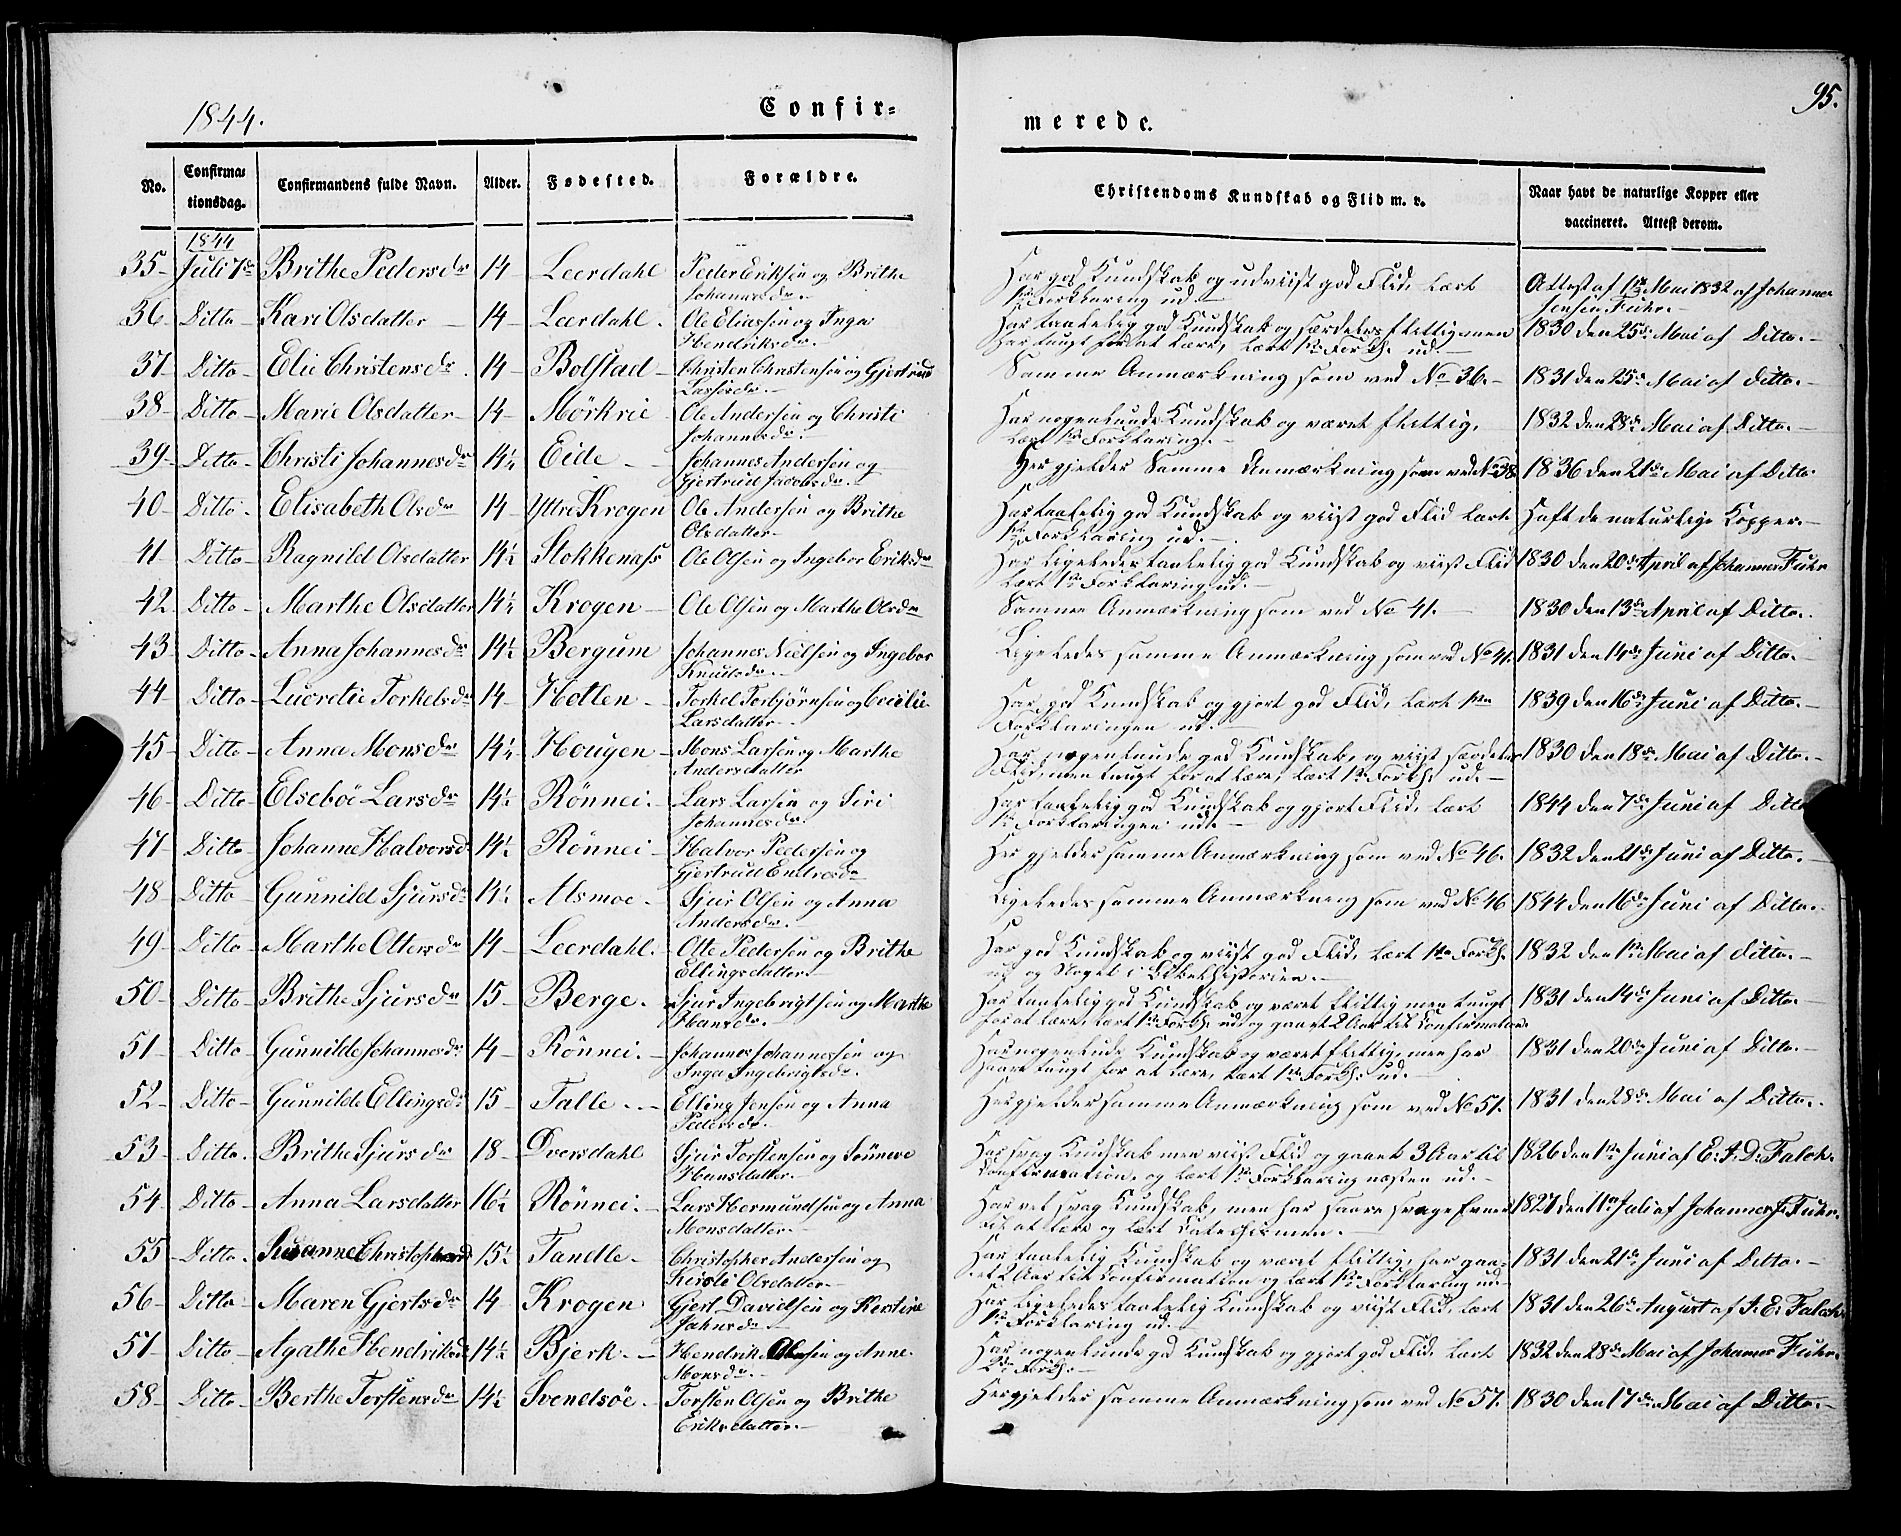 1844.
Confir-
No.
Confirma-
tionsdag.
Confirmandens fulde Navn.
Alder.
Fødested.
Forældre.
1844
35 - Juli 7de Brithe Pedersdr 14 - Leerdahl Peder Eriksen og Brithe
Johannesdr.
36 - Ditto - Kari Olsdatter - 14 - Leerdahl. Ole Eliassen og Inga
Hendriksdr.
37 - Ditto - Elie Christensdr 14 - Bolstad - Christen Christensen og Gjertrud
Larsdr.
38 - Ditto - Marie Olsdatter - 14 - Mörkrie Ole Andersen og Christi
Johannesdr.
39 - Ditto - Christi Johannesdr 14½ Eide - Johannes Andersen og
Gjertrud Jacobsdr.
40 - Ditto - Elisabeth Olsdr 14 - Yttri Krogen Ole Andersen og Brithe
Olsdatter
41 - Ditto - Ragnild Olsdatter 14½ Stokkenæss Ole Olsen og Ingebor Eriksdr
42 - Ditto - Marthe Olsdatter 14½ Krogen - Ole Olsen og Marthe Olsdr
43 - Ditto - Anna Johannesdr 14½ Bergum Johannes Nielsen og Ingebor
Knudsdr.
44 - Ditto - Lucretie Torkelsdr 14 - Hetlen - Torkel Torbjörnsen og Cecilie
Larsdatter -
45 - Ditto - Anna Monsdr 14½ Hougen - Mons Larsen og Marthe
Andersdatter
46 - Ditto - Elsebö Larsdr 14½ Rönnei. Lars Larsen og Siri
Johannesdr.
47 - Ditto - Johanne Halvorsd 14½ Rönnei - Halvor Pedersen og
Gjertrud Endresdr
48 Ditto - Gunnild Sjursdr 14½ Alsmoe. Sjur Olsen og Anna
Andersdr.
49 - Ditto - Marthe Ottersdr 14 - Leerdahl. Otte Pedersen og Brithe
Ellingsdatter.
50 - Ditto - Brithe Sjursdr 15 - Berge. Sjur Ingebrigtsen og Marthe
Hansdr.
51 - Ditto Gunnilde Johannesdr 14 - Rönnei. - Johannes Johannessen og
Inga Ingebrigtsdr.
52 - Ditto - Gunnilde Ellingsdr 15 - Talle. - Elling Jensen og Anna
Pedersdr.
53 - Ditto. Brithe Sjursdr 18 - Dversdahl Sjur Torstensen og Sönneve
Hansdatter.
54 - Ditto - Anna Larsdatter 16½ Rönnei. - Lars Hermundsen og Anna
Monsdatter.
55 - Ditto. Susanne Christophersd 15½ Tandle. Christopher Andersen og
Kirsti Olsdatter.
56 - Ditto - Maren Gjertsdr 14 - Krogen Gjert Davidsen og Kerstine
Jahnsdr.
57 - Ditto - Agathe Hendriksdr 14½ Bjerk. - Hendrik Olsen og Anne
Monsdr.
58 - Ditto - Berthe Torstensdr 14½ Svendsöe. Torsten Olsen og Brithe
Eriksdatter.
95.
merede.
Christendoms Kundskab og Flid m. v.
Naar havt de naturlige Kopper eller
vaccineret. Attest derom.
Har god Kundskab og udviist god Flid, lært Attest af 1ste Mai 1832 af Johannes
Forklaring ud. Jensen Fuhr.
Har taalelig god Kundskab og særdeles flittig men 1830 den 25de Mai af Ditto.
har tungt for at lære, lært Forkl. ud.
Samme Anmærkning som ved No 36. - 1831 den 25de Mai af Ditto.
Har nogenlunde Kundskab og været flittig, 1832 den 28de Mai af Ditto.
lært Forklaring.
Her gjelder Samme Anmærkning som ved No 38 1836 den 21de Mai af Ditto.
Har taalelig god Kundskab og viist god Flid lært Haft de naturlige Kopper.
Forklaring ud.
Har Ligeledes taalelig god Kundskab og viist Flid 1830 den 20de April af Johannes Fuhr
lært Forklaring ud.
Samme Anmærkning som ved No 41. 1830 den 13de April af Ditto.
Ligeledes samme Anmærkning som ved No 41. 1831 den 14de Juni af Ditto.
Har god Kundskab og gjort god Flid, lært 1839 den 16de Juni af Ditto.
Forklaringen ud.
Har nogenlunde god Kundskab, og viist særdeles 1830 den 18de Mai af Ditto.
Flid, men tungt for at lære, lært Forkl. ud. -
Har taalelig god Kundskab og gjort Flid, lært 1844 den 7de Juni af Ditto
Forklaringen ud.
Her gjelder samme Anmærkning som ved No 46. 1832 den 21de Juni af Ditto.
Ligeledes samme Anmærkning som ved No 46 1844 den 16de Juni af Ditto.
Har god Kundskab og viist god Flid, lært Forkl. 1832 den 1ste Mai af Ditto.
ud og Noget i Bibelhistorien.
Har taalelig god Kundskab og været flittig men tungt 1831 den 14de Juni af Ditto.
for at lære, lært Forkl. ud og gaaet 2 Aar til Confirmation.
Har nogenlunde Kundskab og været flittig, men har 1831 den 20de Juni af Ditto.
svært tungt for at lære, lært Forkl. ud.
Her gjelder samme Anmærkning som ved No 51. 1831 den 28de Mai af Ditto.
Har svag Kundskab men viist Flid og gaaet 3 Aar til 1826 den 1ste Juni af E. A. D. Falck.
Confirmation, og lært Forklaring næsten ud.
Har vel svag Kundskab, men har saare svage Evner 1827 den 11te Juli af Johannes J. Fuhr.
til at lære og lært Catechismen.
Har taalelig Kundskab og været flittig, har gaa- 1831 den 21de Juni af Ditto.
et 2 Aar til Confirmation og lært Forklaring ud.
Har Ligeledes taalelig Kundskab og viist Flid, lært 1831 den 26de August af A. E. Falck
Forklaring ud.
Har nogenlunde god Kundskab og gjort god Flid, lært 1832 den 28de Mai af Johannes Fuhr.
Forkl.
Her gjelder samme Anmærkning som ved No 57. 1830 den 17de Mai af Ditto.